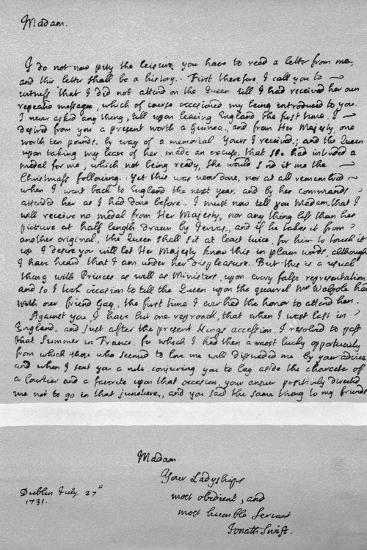 Madam.
I do not now pity the leisure you have to read a letter from me,
and this letter shall be a history. First therefore, I call you to
witness that I did not attend on the Queen till I had received her own
repeated messages, which of course occasioned my being introduced to you.
I never asked any thing, till upon leaving England the first time, I
desired from you a present worth a Guinea, and from Her Majesty, one
worth ten pounds, by way of a memorial. Yours I received; and the Queen
upon taking my leave of her, made an excuse, that she had intended a
medal for me, which not being ready, She would send it me the
Christmas following. Yet this was never done, nor at all remembred
when I went back to England the next year, and by her commands
attended her as I had done before. I must now tell you Madam, that I
will receive no medal from Her Majesty, nor any thing less than her
picture at half length, drawn by Jervas, and if he takes it from
another original, the Queen shall sit at least twice, for him to touch it
up. I desire you will let Her Majesty know this in plain words, although
I have heard that I am under her displeasure. But this is a usual
thing with Princes as well as Ministers, upon every false representation,
and so I took occasion to tell the Queen upon the quarrel Mr Walpole had
with our friend Gay, the first time I ever had the honor to attend her.
Against you I have but one reproach, that when I was last in
England, and just after the present Kings accession, I resolved to pass
that Summer in France, for which I had then a most lucky opportunity,
from which those who seemed to love me well disswaded me by your advice
and when I sent you a note, conjuring you to lay aside the character of
a Courtier and a favorite upon that occasion, your answer positively directed
me not to go in that juncture, and you said the same thing to my friends
Madam
Your Ladyships
most obedient, and
most humble Servant
Jonath Swift.
Dublin July. 27th
1731.